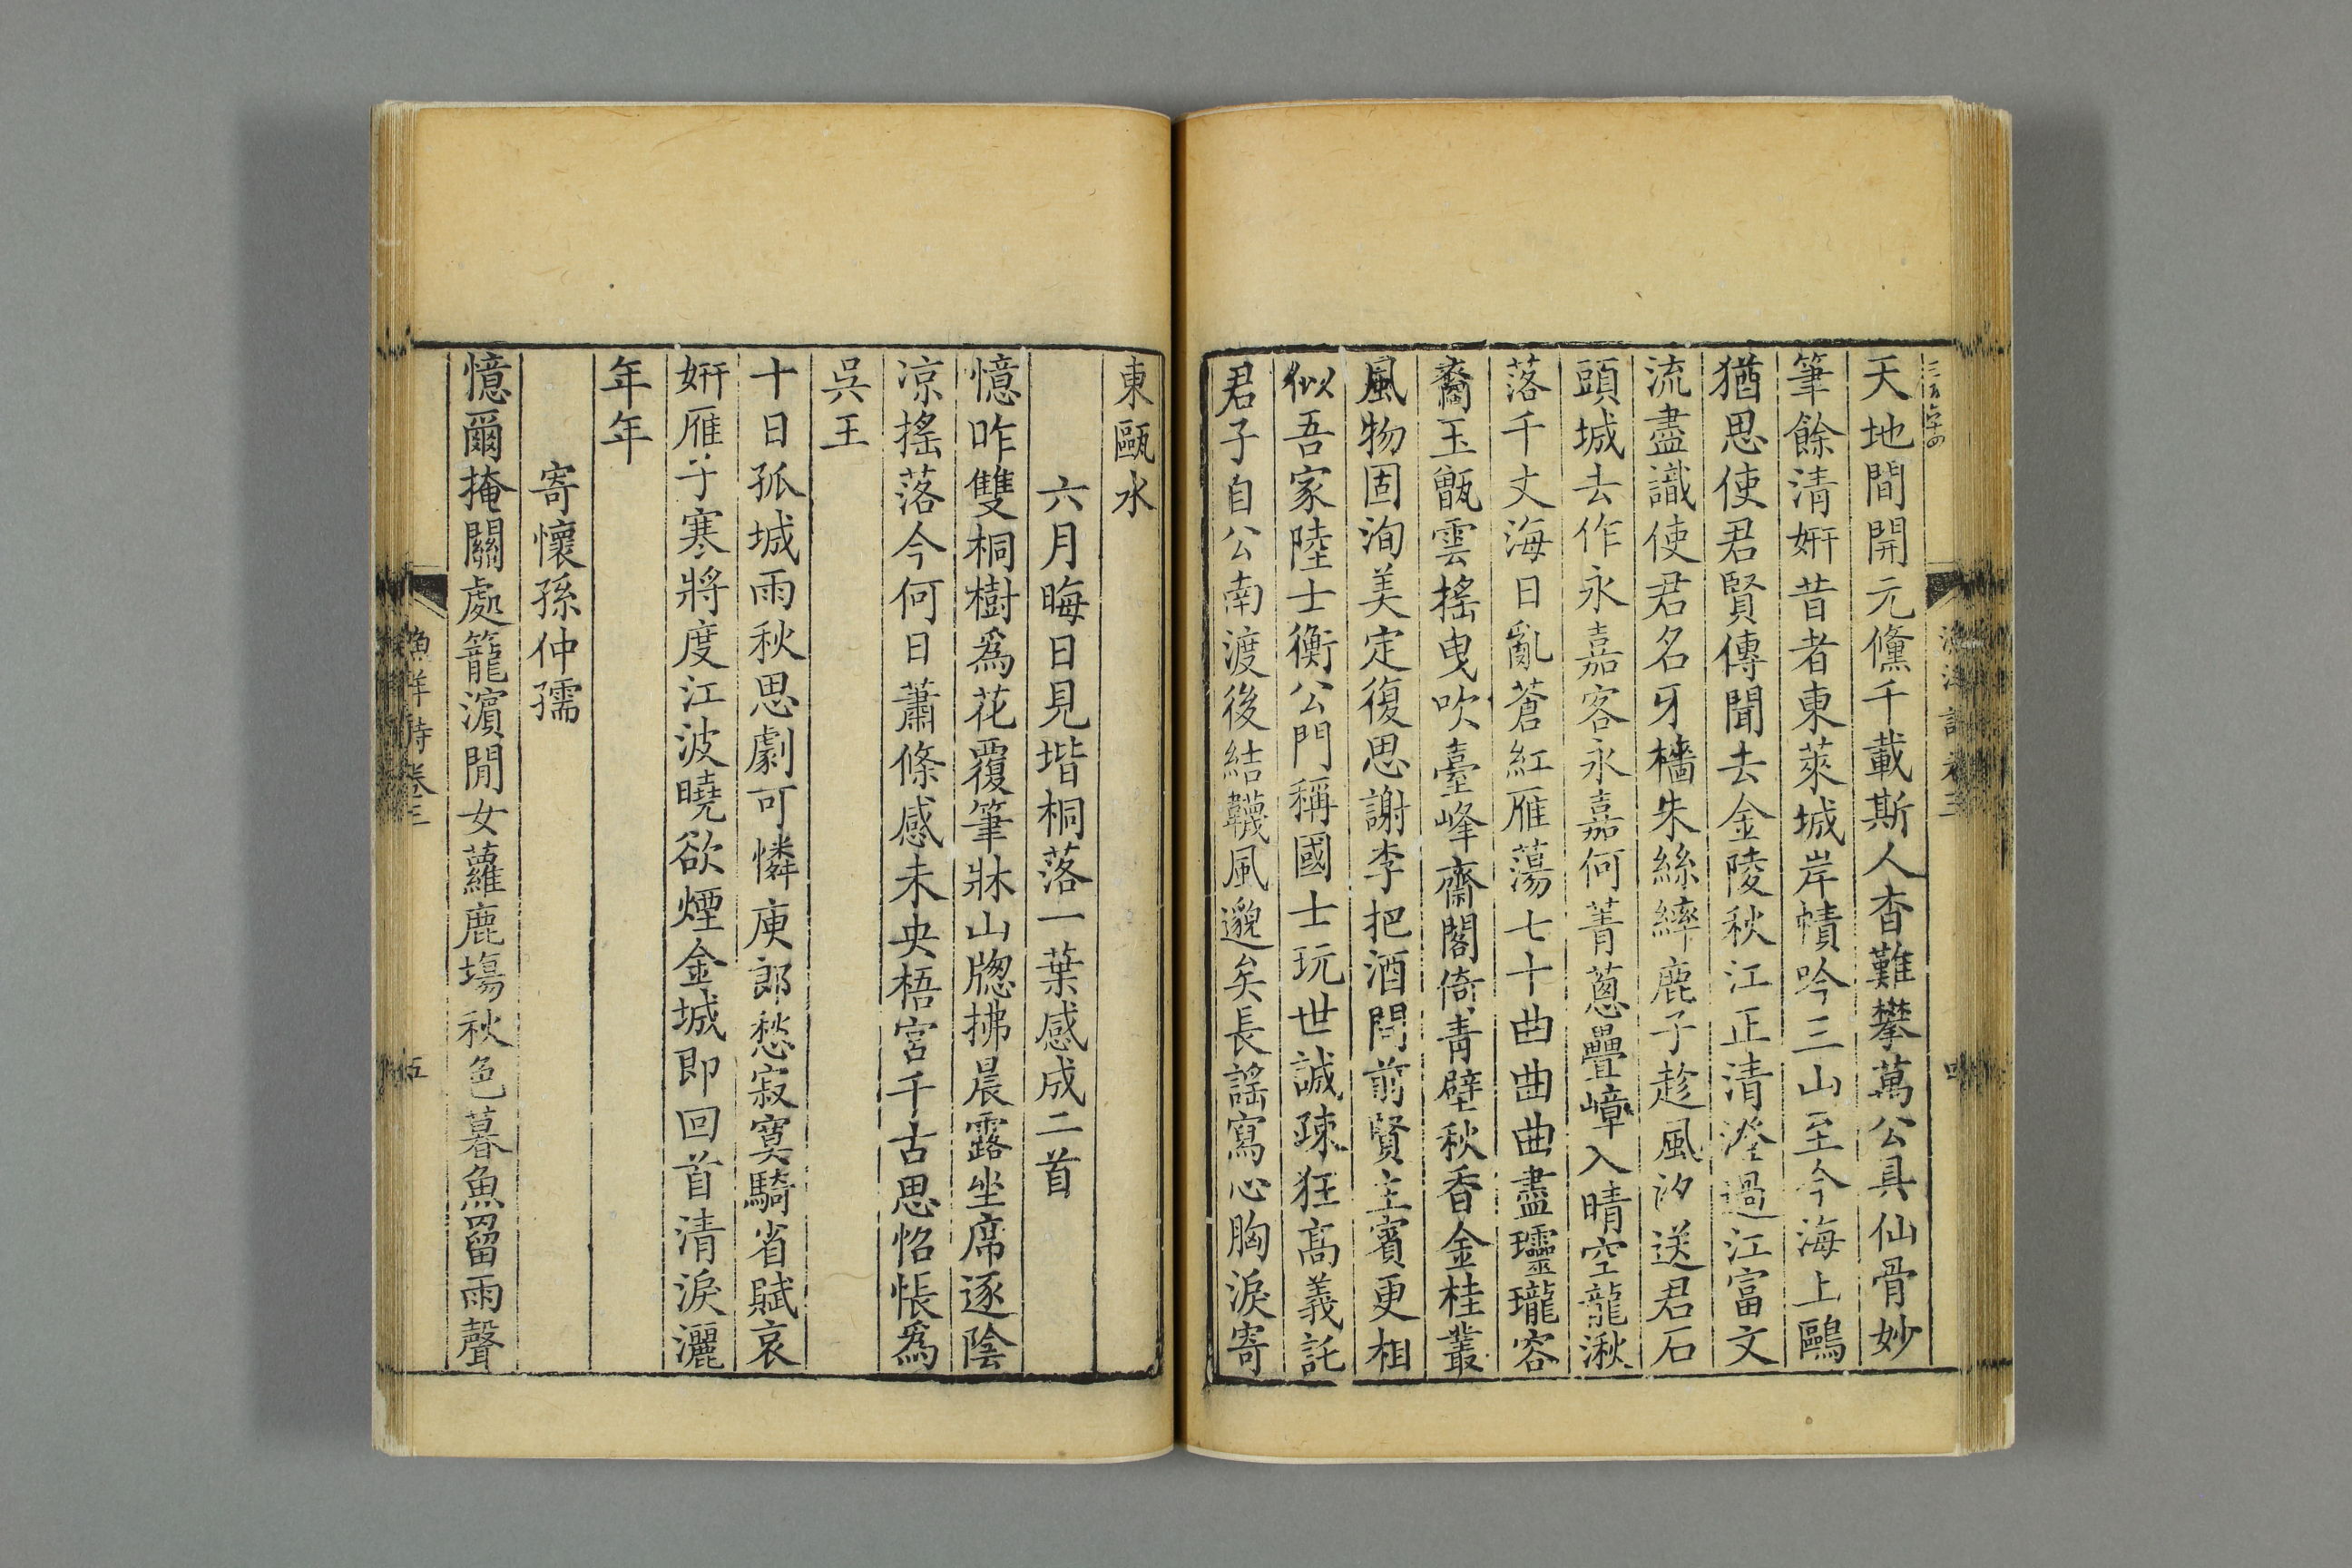 天地間開元儵千載斯人杳難攀萬公具仙骨妙
筆餘清妍昔者東萊城岸幘吟三山至今海上鷗
猶思使君賢傳聞去金陵秋江正清澄過江富文
流盡識使君名牙檣朱絲繂鹿子趁風汐送君石
頭城去作永嘉客永嘉何菁蔥疊嶂入晴空龍湫
落千丈海日亂蒼紅雁蕩七十曲曲曲盡瓏容
裔玉甑雲搖曳吹臺峰齋閣倚青壁秋香金桂叢
風物固洵美定復思謝李把酒問前賢主賓更相
似吾家陸士衡公門稱國士玩世誠疎狂高義託
君子自公南渡後結韈風邈矣長謠寫心胸淚寄
東甌水
六月晦日見堦桐落一葉感成二首
憶昨雙桐樹爲花覆筆牀山牕拂晨露坐席逐陰
凉搖落今何日蕭條感未央梧宮千古思怊悵爲
吳王
十日孤城雨秋思劇可憐庾郎愁寂寞騎省賦哀
妍雁于寒將度江波曉欲煙金城即回首清淚灑
年年
寄懷孫仲孺
憶爾掩關處籠濵閒女蘿鹿塲秋色暮魚罶雨聲
漁洋詩卷三
五